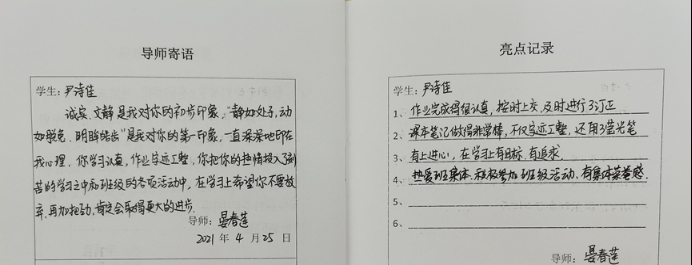 导师寄语
学生：尹诗佳
诚实、文静是我对你的初步印象，“静如处子，动
如脱兔，明眸皓齿”是我对你的第一印象，一直深深地印在
我心理。你学习认真，作业字迹工整，你把你的热情投入了刻
苦的学习之中和班级的各项活动中，在学习上希望你不要放
弃，再加把劲，肯定会取得更大的进步。
导师：晏春莲
2021 年 4 月 25 日
亮点记录
学生：尹诗佳
1、作业完成得很认真，按时上交，及时进行了订正
2、课本笔记做得非常棒，不仅字迹工整，还用了萤光笔
3、有上进心，在学习上有目标，有追求。
4、热爱班集体，积极参加班级活动，有集体荣誉感。
5、
6、
导师：晏春莲